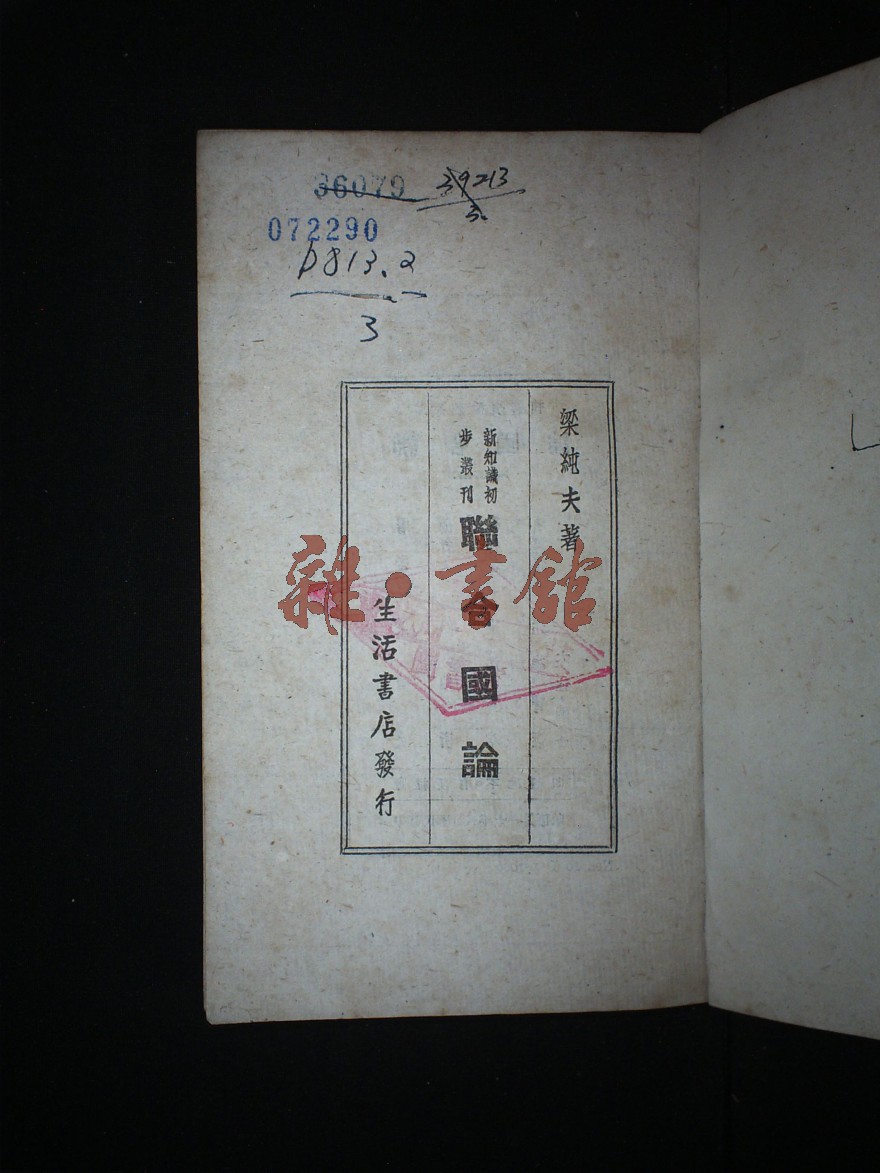 36079
39213
3.
072290
D813.2
3
梁純夫著
新知識初
步叢刊
聯合國論
生活書店發行
雜·書館